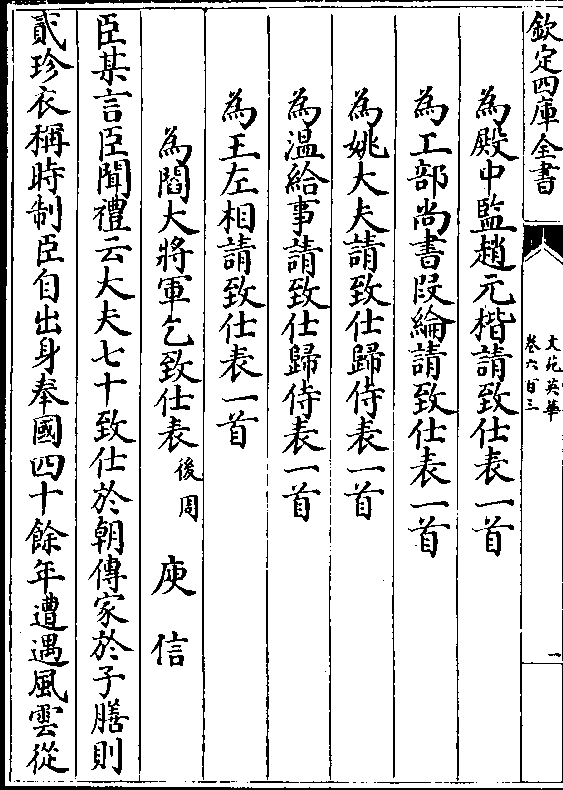 欽定四庫全書
文苑英華
卷六百三
一
為殿中監趙元楷請致仕表一首
為工部尚書段綸請致仕表一首
為姚大夫請致仕歸侍表一首
為温給事請致仕歸侍表一首
為王左相請致仕表一首
為閻大將軍乞致仕表後周 庾信
臣某言臣聞禮云大夫七十致仕於朝傳家於子膳則
貳珍衣稱時制臣自出身奉國四十餘年遭遇風雲從